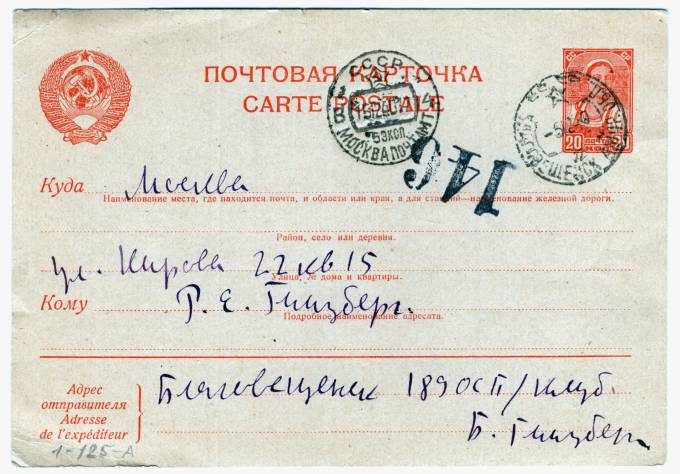 ПОЧТОВАЯ КАРТОЧКА
CARTE POSTALE
СССР
МОСКВА ПОЧТАМТ
20
146
Куда Москва
Наименование места, где находится почта, и области или края, а для станций—наименование железной дороги.
Район, село или деревня.
ул. Кирова 22 кв 15
Улица, № дома и квартиры.
Кому Р. Е. Гинзберг.
Подробное наименование адресата.
Адрес
отправителя
Adresse
de l'expéditeur
Благовещенск 189 ОСП/клуб.
Б. Гинзберг
1-125-А